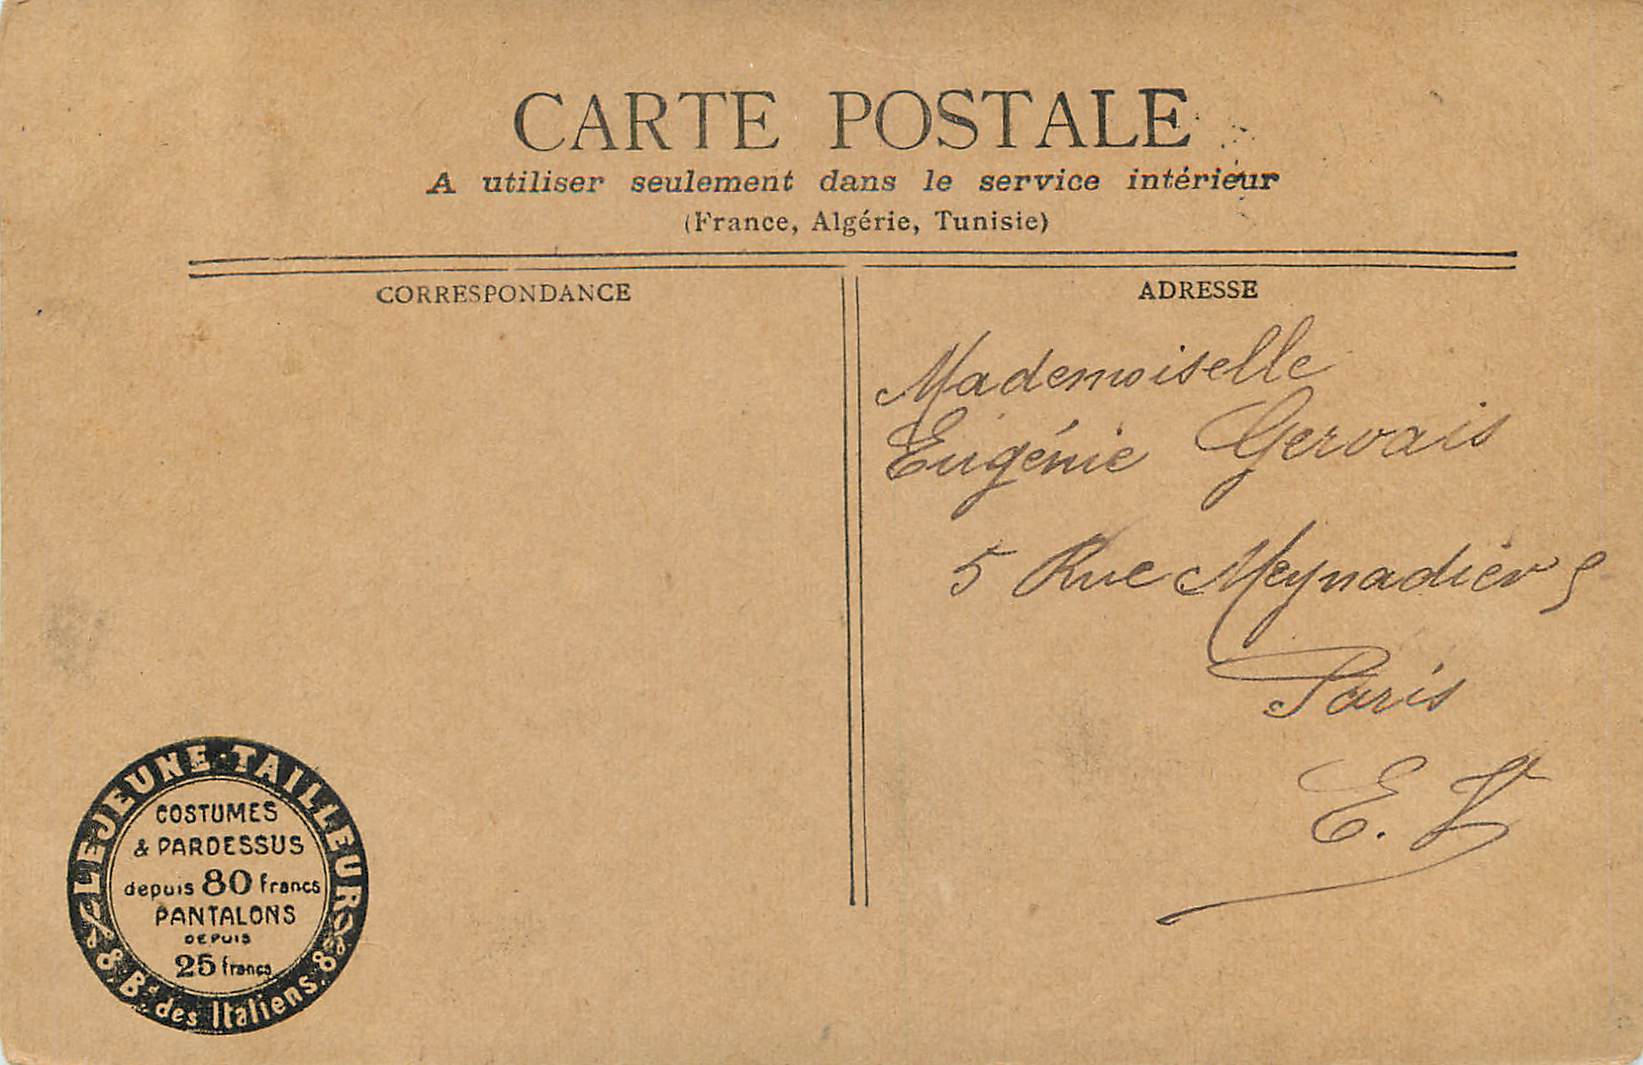 CARTE POSTALE
A utiliser seulement dans le service intérieur
(France, Algérie, Tunisie)
CORRESPONDANCE
ADRESSE
Mademoiselle
Eugénie Gervais
5 Rue Meynadier 5
Paris
E. V
LEJEUNE-TAILLEUR
COSTUMES
& PARDESSUS
depuis 80 francs
PANTALONS
DEPUIS
25 francs
8. Bd. des Italiens. 8